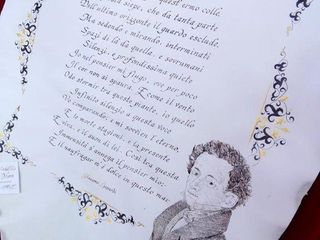 quest'ermo colle,
siepe, che da tanta parte
Dell'ultimo orizzonte il guardo esclude.
Ma sedendo e mirando, interminati
Spazi di là da quella, e sovrumani
Silenzi, e profondissima quiete
Io nel pensier mi fingo, ove per poco
Il cor non si spaura. E come il vento
Odo stormir tra queste piante, io quello
Infinito silenzio a questa voce
Vo comparando: e mi sovvien l'eterno,
E le morte stagioni, e la presente
E viva, e il suon di lei. Così tra questa
Immensità s'annega il pensier mio:
E il naufragar m'è dolce in questo mar